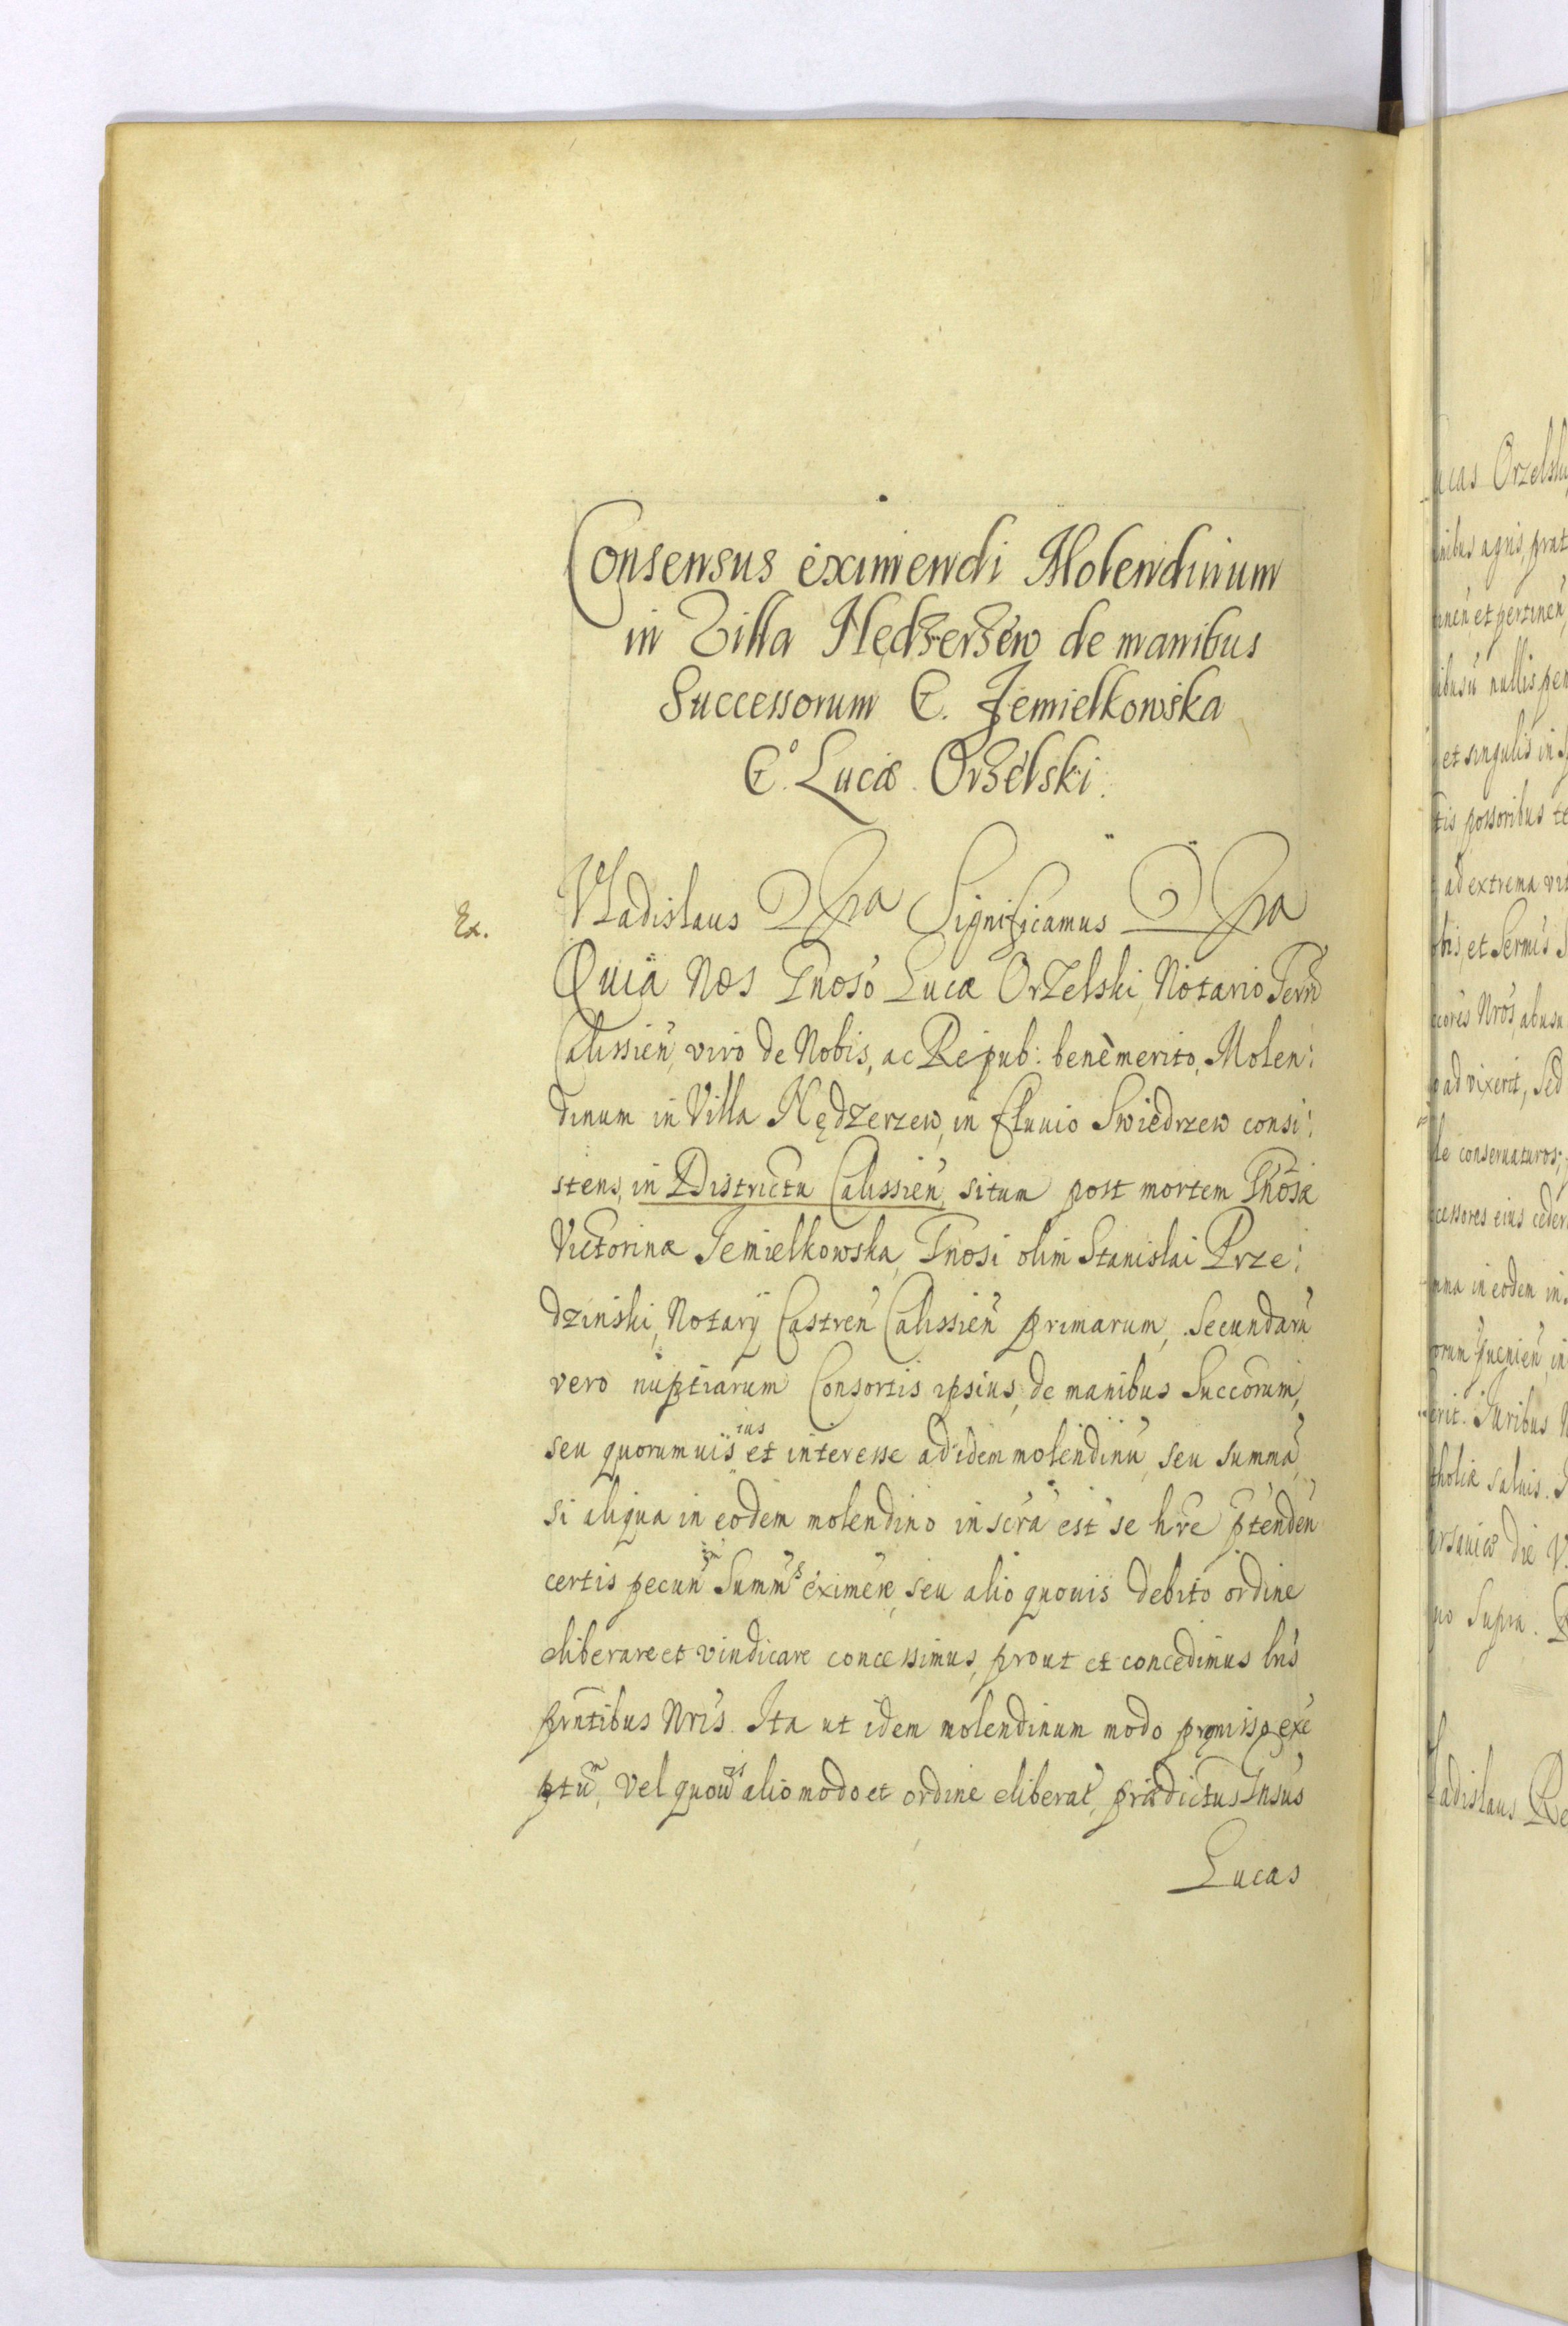 Consensus eximendi Molendinum
in Villa Nędzerzew de manibus
Successorum G. Jemielkowska
Gº. Lucæ Orzelski.
Ex.
Vladislaus &c̃ra Significamus &c̃ra
Quia Nos Gnoso Lucæ Orzelski, Notario Terrñ
Calissień, viro de Nobis, ac Repub: benèmerito, Molen:
dinum in Villa Nędzerzew, in fluuio Swiedrzew consi:
stens, in Districtu Calissień, situm post mortem Gnosæ
Victorinæ Jemielkowska, Gnosi olim Stanislai Prze:
dzinski, Notarij Castreń Calissień primarum, Secundarũ
vero nuptiarum Consortis ipsius, de manibus Succorum,
seu quorumuis ius et interesse ad idem molendinũ, seu summã,
si aliqua in eodem molendino inscrã est se hr̃e p̃tendeń
certis pecuń Summs eximere, seu alio quouis debito ordine
eliberare et vindicare concessimus, prout et concedimus lris
pr̃ntibus Nris. Ita ut idem molendinum modo præmisso exē
ptum, vel quouis alio modo et ordine eliberat, prædictus Gnsus
Lucas
ucas Orzelski
nibus agris, prat
nen et pertineń
nullis pen
et singulis in
tis possoribus te
ad extrema vit
bis, et Sermis S
cores Nros, abusu
ad vixerit, Sed
le conseruaturos,
cessores eius ceder
ma in eodem in
orum quenień, in
erit. Juribus N
tholicæ saluis.
arsauiæ die V
no supra.
ladislaus Re